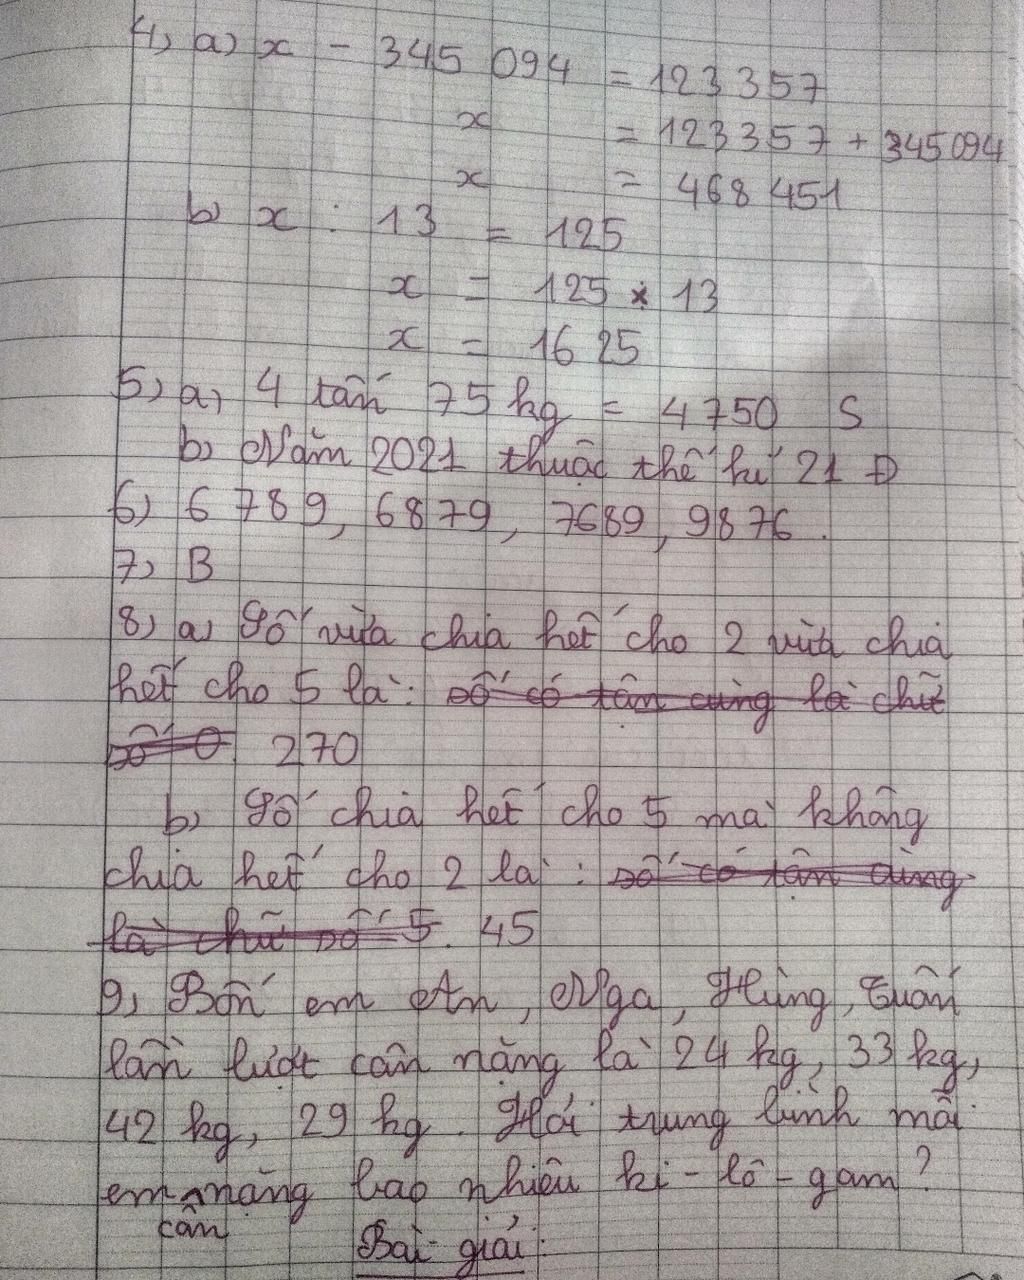 4, a, x - 345 094 = 123 357
x = 123 357 + 345 094
x = 468 451
b, x : 13 = 125
x = 125 x 13
x = 16 25
5, a, 4 tấn 75 kg = 4750 S
b, Năm 2021 thuộc thế kỉ 21 Đ
6, 6 789, 6879, 7689, 9876.
7, B
8, a, Số vừa chia hết cho 2 vừa chia
hết cho 5 là: số có tận cùng là chữ
số 0 270
b, Số chia hết cho 5 mà không
chia hết cho 2 là: số có tận cùng
là chữ số 5. 45
9, Bốn em An, Nga, Hùng, Tuấn
lần lượt cân nặng là 24 kg, 33 kg,
42 kg, 29 kg. Hỏi trung bình mỗi
em cân nặng bao nhiêu ki-lô-gam?
Bài giải: